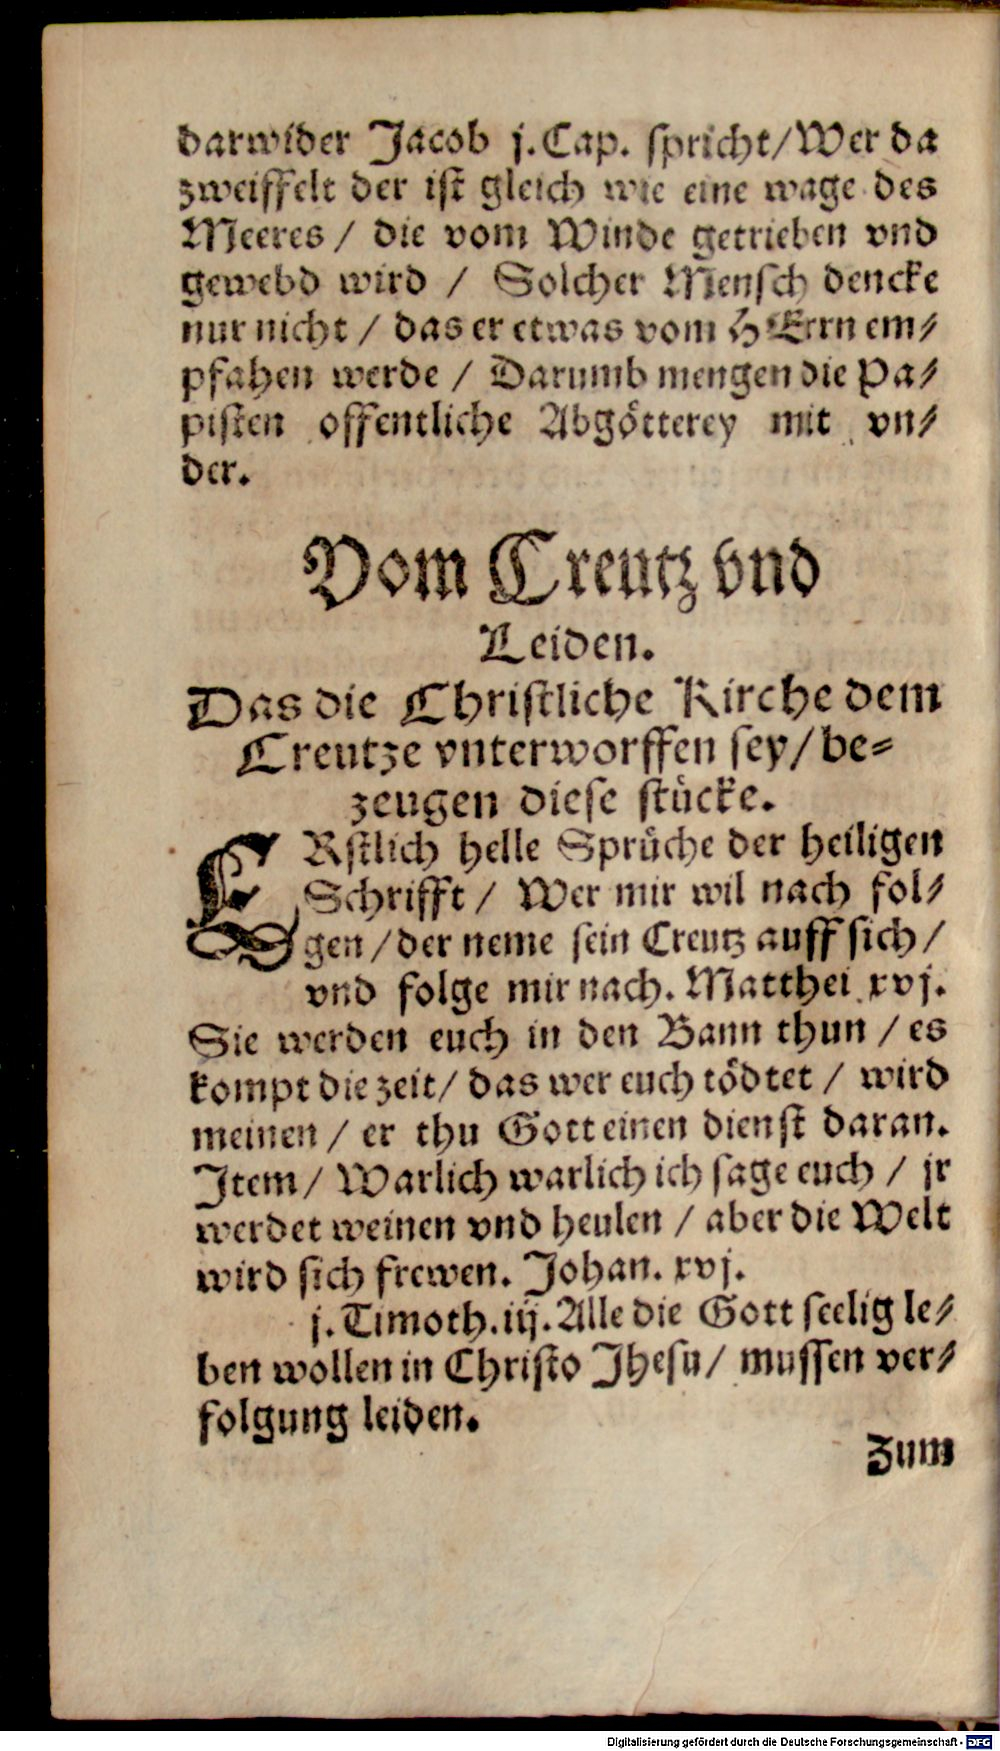 darwider Jacob j. Cap. spricht/ Wer da
zweiffelt der ist gleich wie eine wage des
Meeres / die vom Winde getrieben vnd
gewebd wird / Solcher Mensch dencke
nur nicht / das er etwas vom HErrn em⸗
pfahen werde / Darumb mengen die Pa⸗
pisten offentliche Abgötterey mit vn⸗
der.
Vom Creutz vnd
Leiden.
Das die Christliche Kirche dem
Creutze vnterworffen sey/ be⸗
zeugen diese stücke.
ERstlich helle Sprüche der heiligen
Schrifft / Wer mir wil nach fol⸗
gen / der neme sein Creutz auff sich /
vnd folge mir nach. Matthei xvj.
Sie werden euch in den Bann thun / es
kompt die zeit/ das wer euch tödtet / wird
meinen / er thu Gott einen dienst daran.
Item/ Warlich warlich ich sage euch / jr
werdet weinen vnd heulen / aber die Welt
wird sich frewen. Johan. xvj.
j. Timoth. iij. Alle die Gott seelig le⸗
ben wollen in Christo Jhesu/ mussen ver⸗
folgung leiden.
Zum
Digitalisierung gefördert durch die Deutsche Forschungsgemeinschaft - DFG